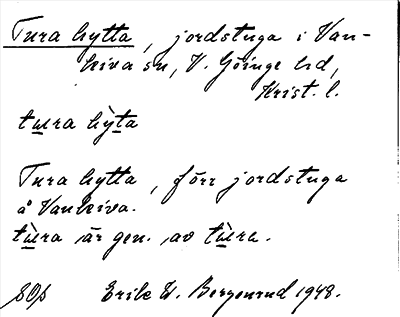 Tura hytta, jordstuga i Van-
kiva sn, V. Göinge hd,
Krist. l.
tɯ̀ra hỳta
Tura hytta, förr jordstuga
å Vankiva.
tɯ̀ra är gen. av tɯ̀ra.
Erik W. Bergenrud 1948.